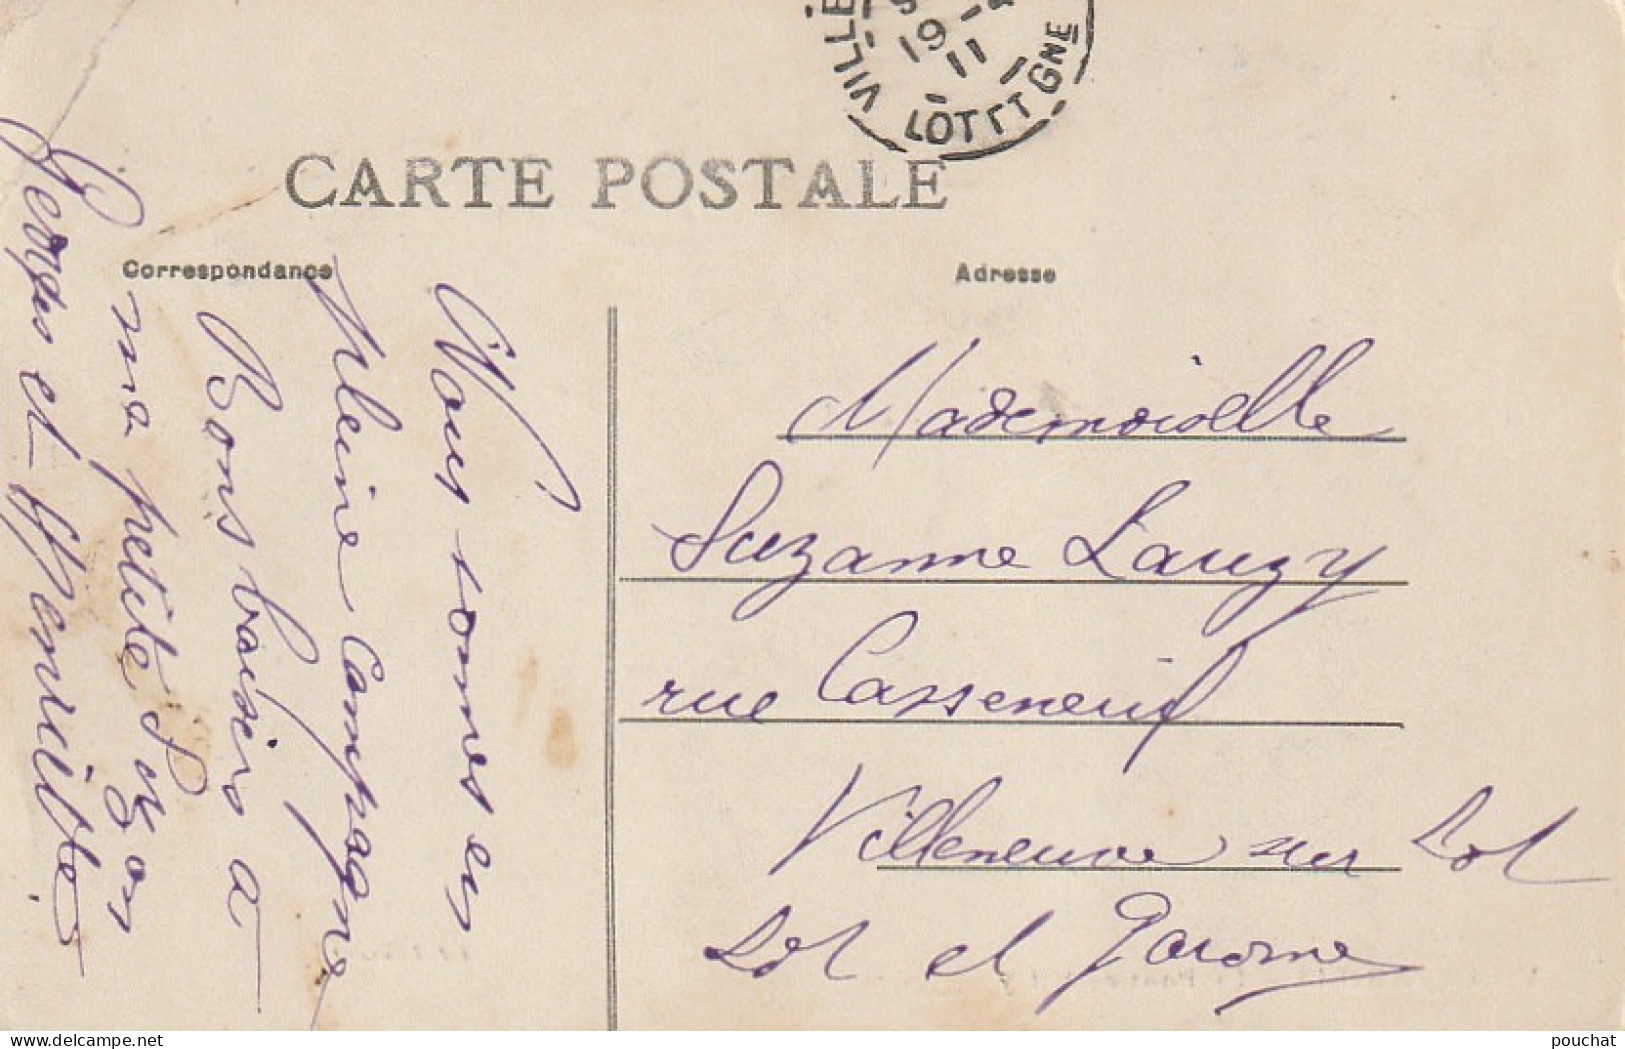 VILLE
19 -
11
LOT ET GNE
CARTE POSTALE
Correspondance
Adresse
Nous sommes en
pleine campagne
Bons baisers à
ma petite Suzon
Georges et
Mademoiselle
Suzanne Lauzy
rue Casseneuil
Villeneuve sur Lot
Lot et Garonne
www.delcampe.net
pouchat